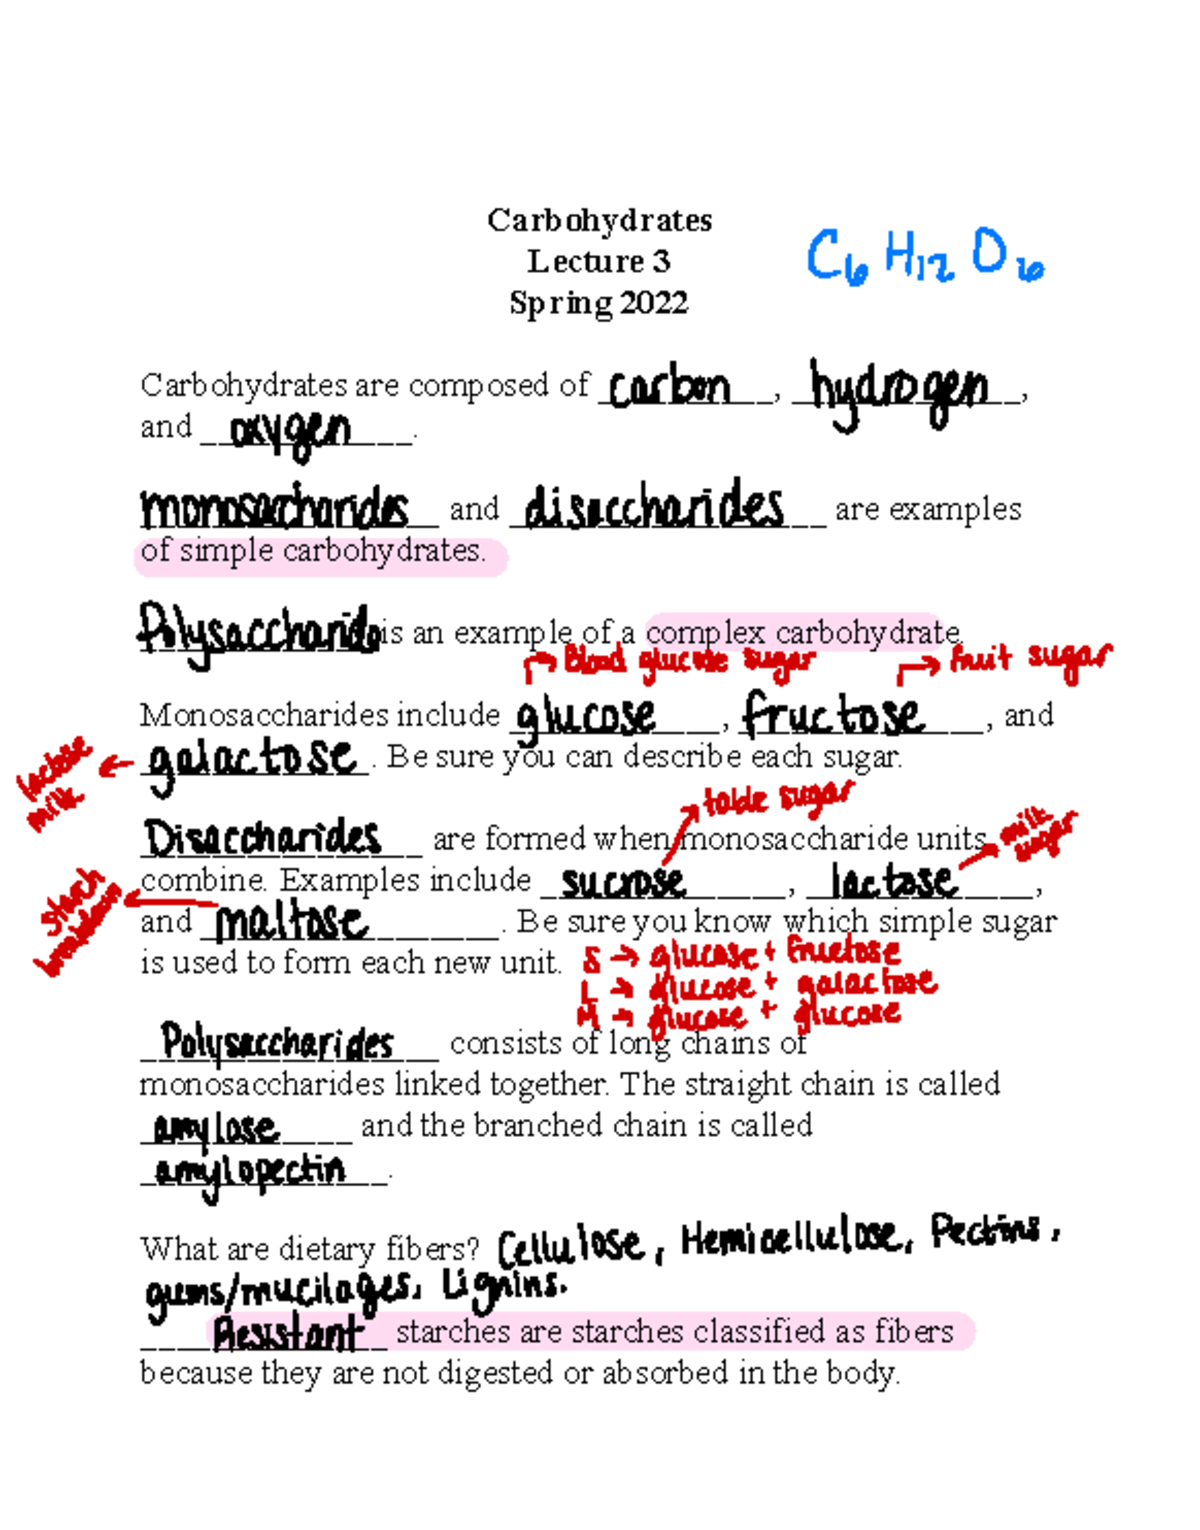 Carbohydrates
Lecture 3
Spring 2022
C6 H12 O6
Carbohydrates are composed of carbon, hydrogen,
and oxygen.
monosaccharides and disaccharides are examples
of simple carbohydrates.
Polysaccharide is an example of a complex carbohydrate.
→ Blood glucose sugar → fruit sugar
Monosaccharides include glucose, fructose, and
lactose milk ← galactose. Be sure you can describe each sugar.
→ table sugar
Disaccharides are formed when monosaccharide units → milk sugar
combine. Examples include sucrose, lactose,
starch breakdown ← and maltose. Be sure you know which simple sugar
is used to form each new unit. S → glucose + fructose
L → glucose + galactose
M → glucose + glucose
Polysaccharides consists of long chains of
monosaccharides linked together. The straight chain is called
amylose and the branched chain is called
amylopectin.
What are dietary fibers? Cellulose, Hemicellulose, Pectins,
gums/mucilages, Lignins.
Resistant starches are starches classified as fibers
because they are not digested or absorbed in the body.